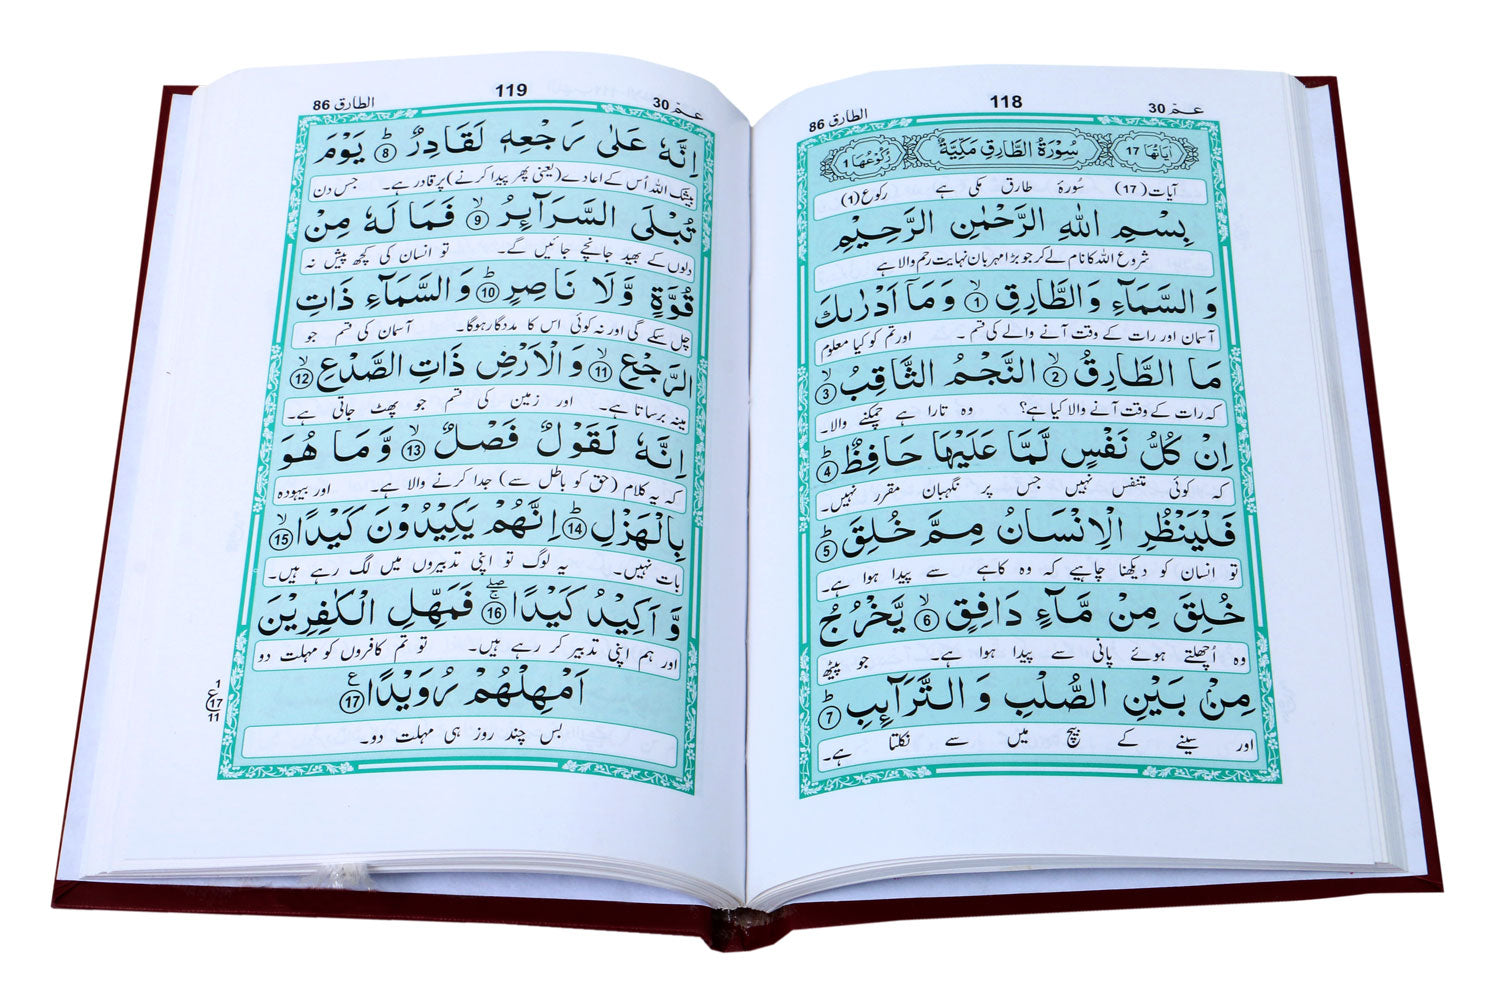 الطارق 86
118
عـمّ 30
اٰيَاتُهَا 17
سُوْرَةُ الطَّارِقِ مَكِّيَّةٌ
رُكُوْعُهَا 1
آیات (17) سُورۂ طارق مکی ہے رکوع (1)
بِسْمِ اللّٰهِ الرَّحْمٰنِ الرَّحِيْمِ
شروع اللہ کا نام لے کر جو بڑا مہربان نہایت رحم والا ہے
وَ السَّمَآءِ وَالطَّارِقِ ۙ1 وَ مَاۤ اَدْرٰىكَ
آسمان اور رات کے وقت آنے والے کی قسم ۔ اور تم کو کیا معلوم
مَا الطَّارِقُ ۙ2 النَّجْمُ الثَّاقِبُ ۙ3
کہ رات کے وقت آنے والا کیا ہے؟ وہ تارا ہے چمکنے والا۔
اِنْ كُلُّ نَفْسٍ لَّمَّا عَلَيْهَا حَافِظٌ ؕ4
کہ کوئی متنفس نہیں جس پر نگہبان مقرر نہیں۔
فَلْيَنْظُرِ الْاِنْسَانُ مِمَّ خُلِقَ ؕ5
تو انسان کو دیکھنا چاہیے کہ وہ کاہے سے پیدا ہوا ہے۔
خُلِقَ مِنْ مَّآءٍ دَافِقٍ ۙ6 يَّخْرُجُ
وہ اُچھلتے ہوئے پانی سے پیدا ہوا ہے۔ جو پیٹھ
مِنْۢ بَيْنِ الصُّلْبِ وَ التَّرَآئِبِ ؕ7
اور سینے کے بیچ میں سے نکلتا ہے۔
الطارق 86
119
عـمّ 30
اِنَّهٗ عَلٰى رَجْعِهٖ لَقَادِرٌ ؕ8 يَوْمَ
بیشک اللہ اُس کے اعادے (یعنی پھر پیدا کرنے) پر قادر ہے۔ جس دن
تُبْلَى السَّرَآئِرُ ۙ9 فَمَا لَهٗ مِنْ
دلوں کے بھید جانچے جائیں گے۔ تو انسان کی کچھ پیش نہ
قُوَّةٍ وَّلَا نَاصِرٍ ؕ10 وَ السَّمَآءِ ذَاتِ
چل سکے گی اور نہ کوئی اس کا مددگار ہوگا۔ آسمان کی قسم جو
الرَّجْعِ ۙ11 وَ الْاَرْضِ ذَاتِ الصَّدْعِ ۙ12
مینہ برساتا ہے۔ اور زمین کی قسم جو پھٹ جاتی ہے۔
اِنَّهٗ لَقَوْلٌ فَصْلٌ ۙ13 وَّ مَا هُوَ
کہ یہ کلام (حق کو باطل سے) جدا کرنے والا ہے۔ اور بیہودہ
بِالْهَزْلِ ؕ14 اِنَّهُمْ يَكِيْدُوْنَ كَيْدًا ۙ15
بات نہیں۔ یہ لوگ تو اپنی تدبیروں میں لگ رہے ہیں۔
وَّ اَكِيْدُ كَيْدًا ۚۖ16 فَمَهِّلِ الْكٰفِرِيْنَ
اور ہم اپنی تدبیر کر رہے ہیں۔ تو تم کافروں کو مہلت دو
اَمْهِلْهُمْ رُوَيْدًا ع17
بس چند روز ہی مہلت دو۔
1
ع
17
11